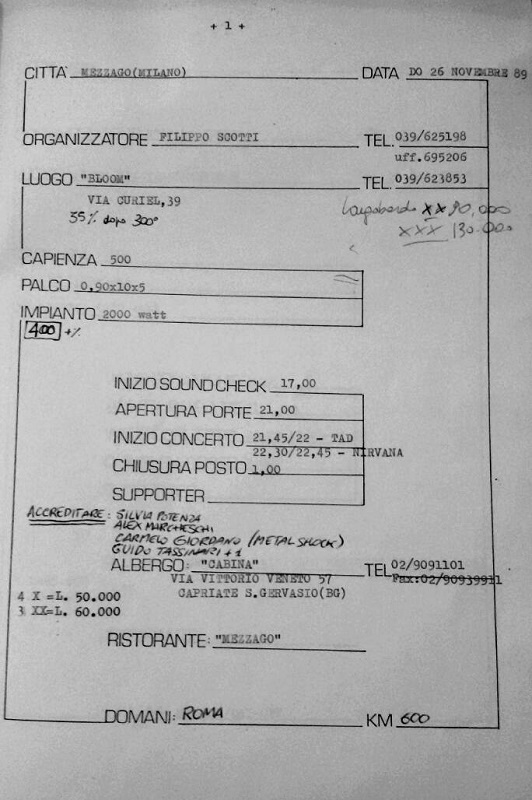 + 1 +
CITTA' MEZZAGO(MILANO) DATA DO 26 NOVEMBRE 89
ORGANIZZATORE FILIPPO SCOTTI TEL. 039/625198
uff.695206
LUOGO "BLOOM" TEL. 039/623853
VIA CURIEL,39
35% dopo 300°
XX 90,000
XXX 130.000
CAPIENZA 500
PALCO 0,90x10x5
IMPIANTO 2000 watt
400 +%
INIZIO SOUND CHECK 17,00
APERTURA PORTE 21,00
INIZIO CONCERTO 21,45/22 - TAD
22,30/22,45 - NIRVANA
CHIUSURA POSTO 1,00
SUPPORTER
ACCREDITARE: SILVIA POTENZA
ALEX MARCHESCHI
CARMELO GIORDANO (METAL SHOCK)
GUIDO TASSINARI + 1
ALBERGO: "CABINA" TEL 02/9091101
VIA VITTORIO VENETO 57 Fax:02/90939911
CAPRIATE S.GERVASIO(BG)
4 X =L. 50.000
3 XX=L. 60.000
RISTORANTE: "MEZZAGO"
DOMANI: ROMA KM 600